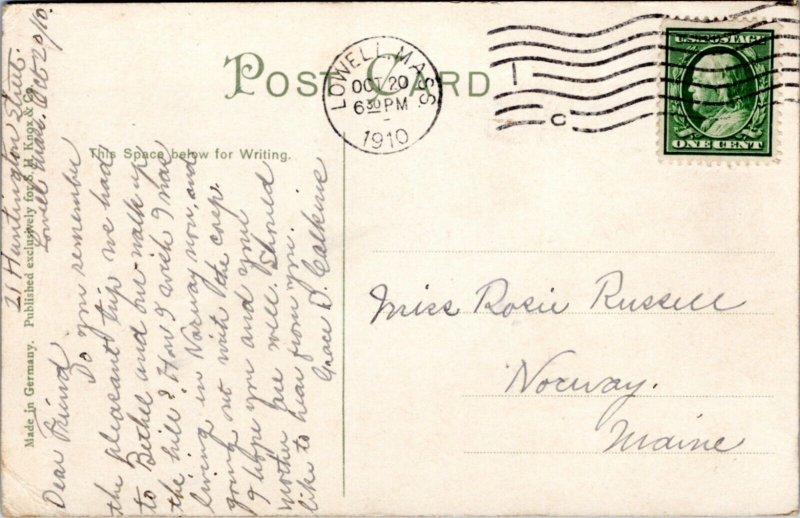 POST CARD
This Space below for Writing.
Made in Germany. Published exclusively for S. H. Knox & Co.
LOWELL, MASS
OCT 20
6 30 PM
1910
C
U.S. POSTAGE
ONE CENT
21 Huntington Street.
Lowell Mass. Oct 20/10.
Dear Friend
Do you remember
the pleasant trip we had
to Bethel and our walk up
the hill? How I wish I was
living in Norway now, and
going out with the corp.
I hope you and your
mother are well. Should
like to hear from you.
Grace D. Calkins
Miss Rosie Russell
Norway.
Maine